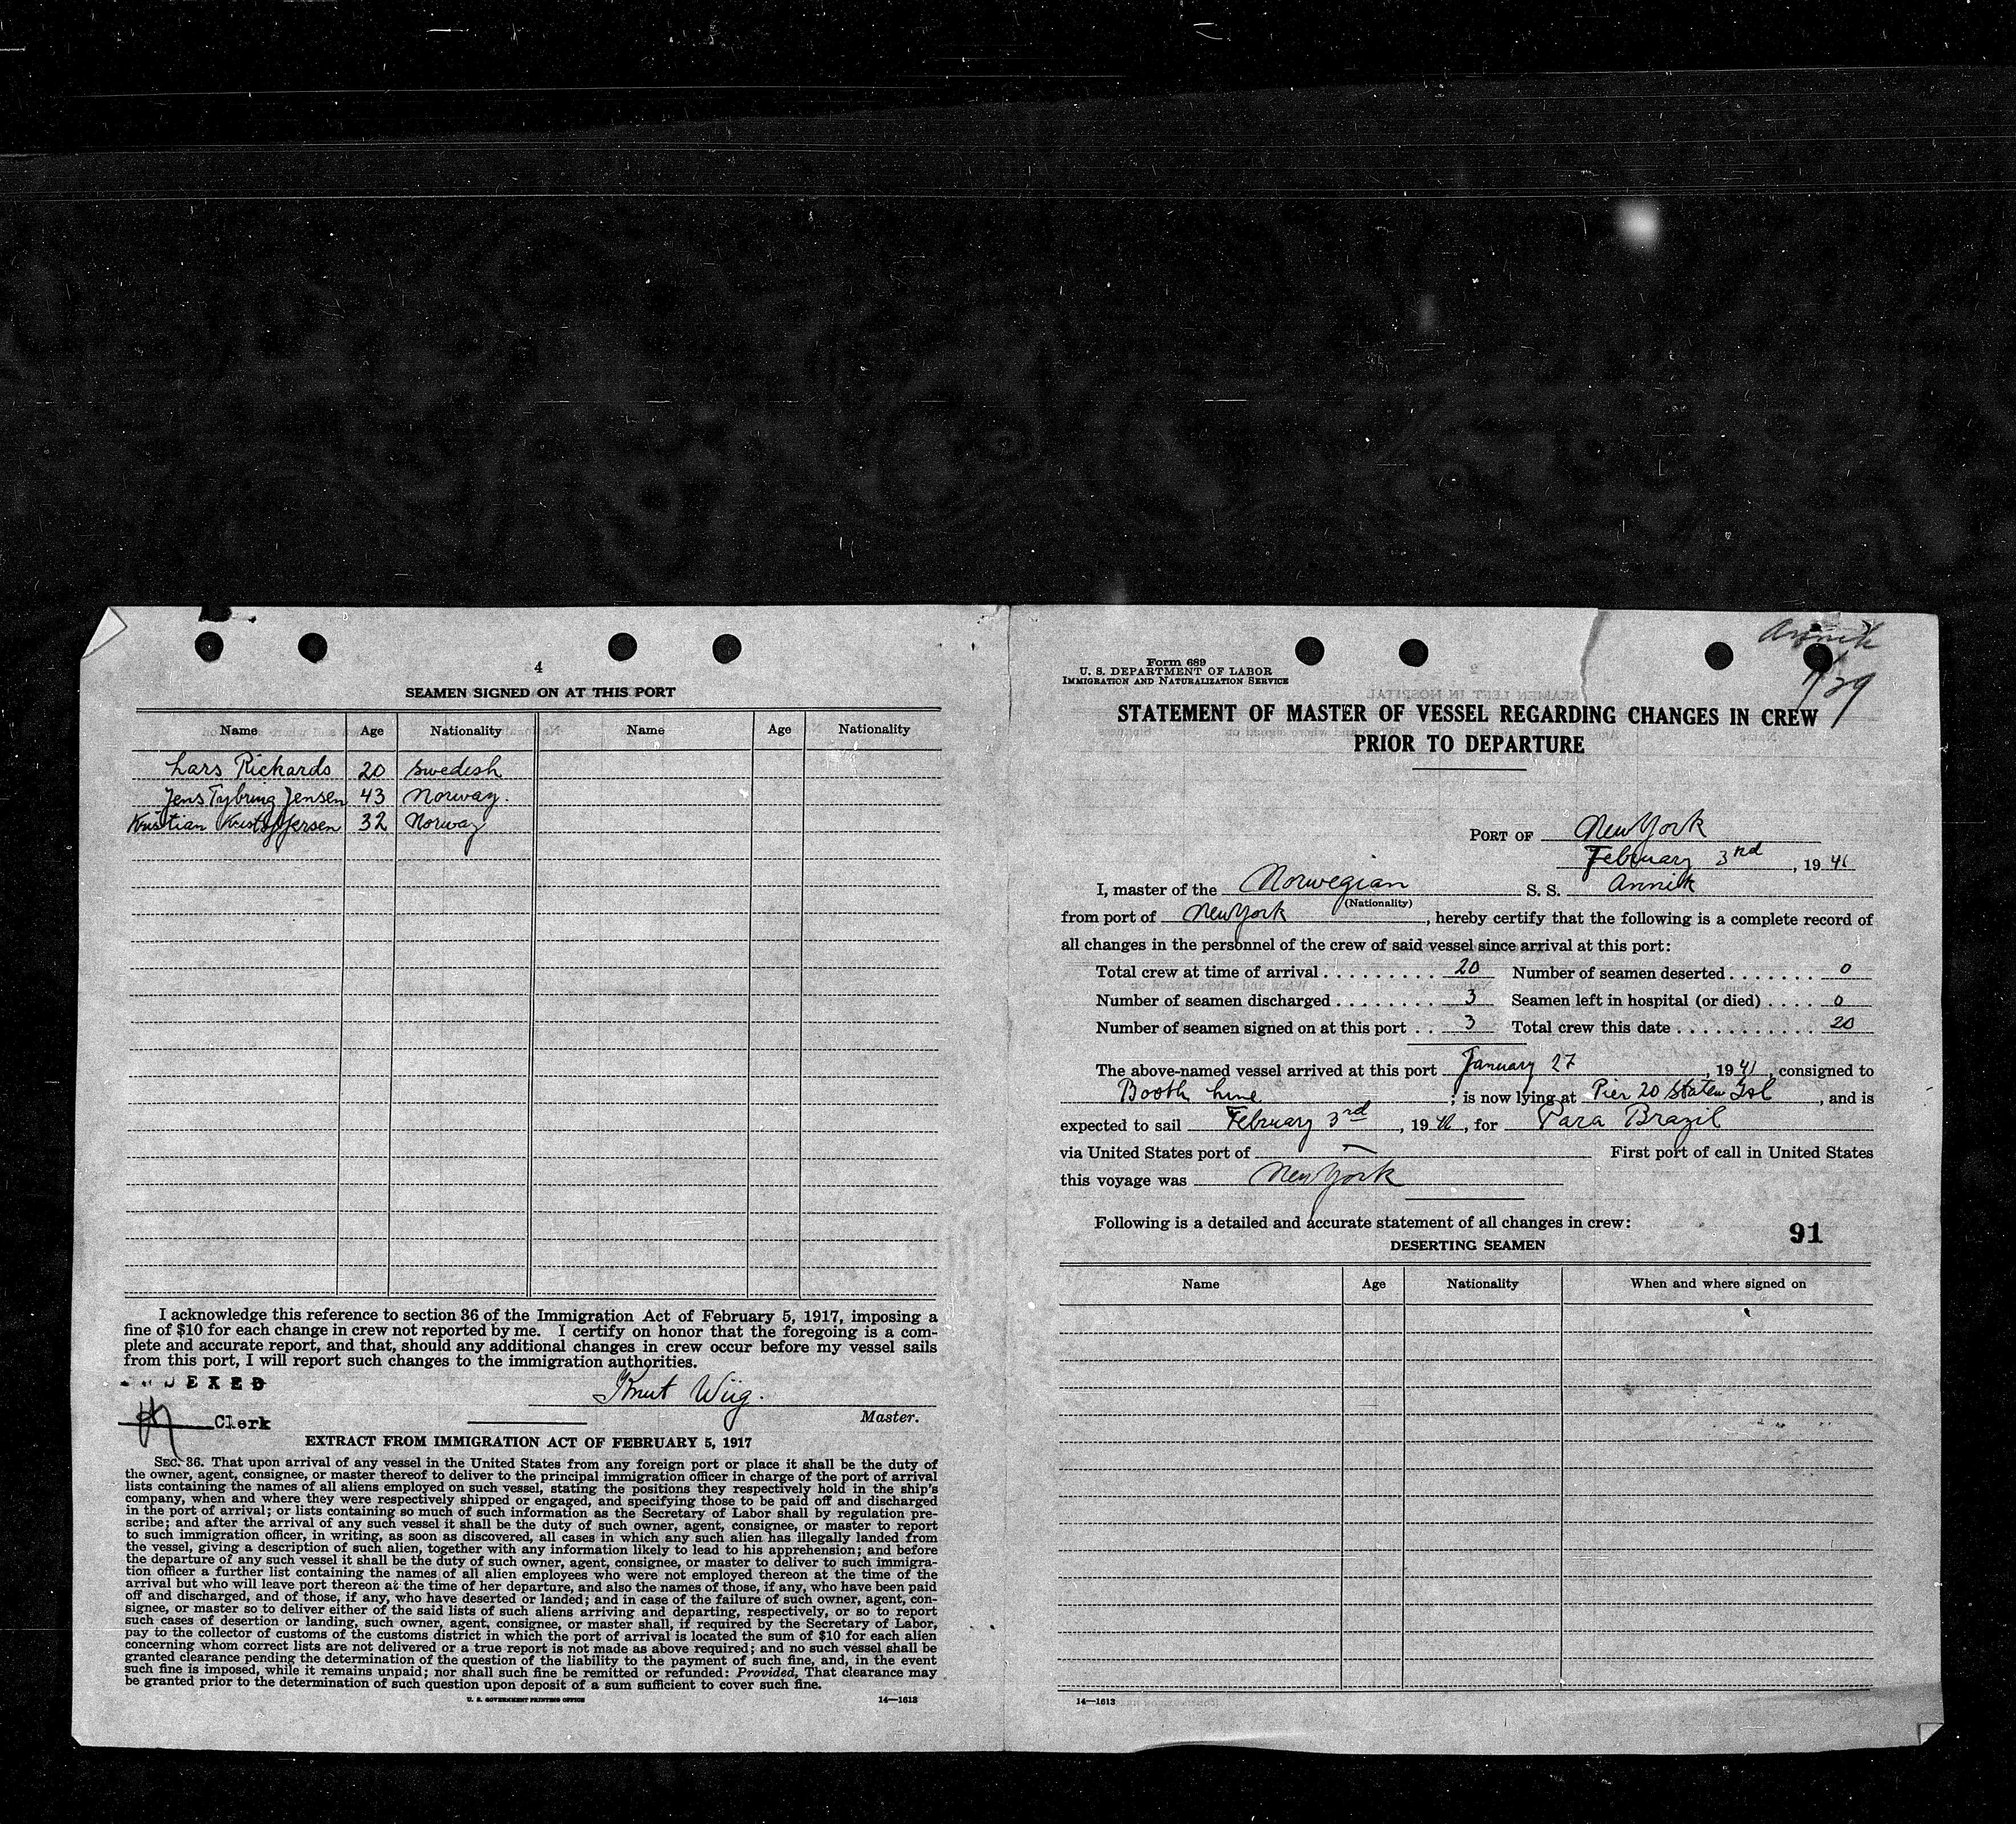 4
SEAMEN SIGNED ON AT THIS PORT
Name Age Nationality Name Age Nationality
Lars Rickards 20 Swedish
Jens Tybring Jensen 43 Norway.
Kristian Kristoffersen 32 Norway
I acknowledge this reference to section 36 of the Immigration Act of February 5, 1917, imposing a
fine of $10 for each change in crew not reported by me. I certify on honor that the foregoing is a com-
plete and accurate report, and that, should any additional changes in crew occur before my vessel sails
from this port, I will report such changes to the immigration authorities.
Knut Wiig.
Clerk
Master.
EXTRACT FROM IMMIGRATION ACT OF FEBRUARY 5, 1917
SEC. 36. That upon arrival of any vessel in the United States from any foreign port or place it shall be the duty of
the owner, agent, consignee, or master thereof to deliver to the principal immigration officer in charge of the port of arrival
lists containing the names of all aliens employed on such vessel, stating the positions they respectively hold in the ship's
company, when and where they were respectively shipped or engaged, and specifying those to be paid off and discharged
in the port of arrival; or lists containing so much of such information as the Secretary of Labor shall by regulation pre-
scribe; and after the arrival of any such vessel it shall be the duty of such owner, agent, consignee, or master to report
to such immigration officer, in writing, as soon as discovered, all cases in which any such alien has illegally landed from
the vessel, giving a description of such alien, together with any information likely to lead to his apprehension; and before
the departure of any such vessel it shall be the duty of such owner, agent, consignee, or master to deliver to such immigra-
tion officer a further list containing the names of all alien employees who were not employed thereon at the time of the
arrival but who will leave port thereon at the time of her departure, and also the names of those, if any, who have been paid
off and discharged, and of those, if any, who have deserted or landed; and in case of the failure of such owner, agent, con-
signee, or master so to deliver either of the said lists of such aliens arriving and departing, respectively, or so to report
such cases of desertion or landing, such owner, agent, consignee, or master shall, if required by the Secretary of Labor,
pay to the collector of customs of the customs district in which the port of arrival is located the sum of $10 for each alien
concerning whom correct lists are not delivered or a true report is not made as above required; and no such vessel shall be
granted clearance pending the determination of the question of the liability to the payment of such fine, and, in the event
such fine is imposed, while it remains unpaid; nor shall such fine be remitted or refunded: Provided, That clearance may
be granted prior to the determination of such question upon deposit of a sum sufficient to cover such fine.
U. S. GOVERNMENT PRINTING OFFICE 14—1613
Annik
1/29
Form 689
U. S. DEPARTMENT OF LABOR
IMMIGRATION AND NATURALIZATION SERVICE
STATEMENT OF MASTER OF VESSEL REGARDING CHANGES IN CREW
PRIOR TO DEPARTURE
PORT OF New York
February 3rd, 1941
I, master of the Norwegian S. S. Annik
(Nationality)
from port of New York, hereby certify that the following is a complete record of
all changes in the personnel of the crew of said vessel since arrival at this port:
Total crew at time of arrival . . . . . . . . . 20 Number of seamen deserted . . . . . . . 0
Number of seamen discharged . . . . . . . . 3 Seamen left in hospital (or died) . . . . 0
Number of seamen signed on at this port . . 3 Total crew this date . . . . . . . . . . . . 20
The above-named vessel arrived at this port January 27, 1941, consigned to
Booth Line; is now lying at Pier 20 Staten Isl, and is
expected to sail February 3rd, 1941, for Para Brazil
via United States port of — First port of call in United States
this voyage was New York
Following is a detailed and accurate statement of all changes in crew:
91
DESERTING SEAMEN
Name Age Nationality When and where signed on
14—1613